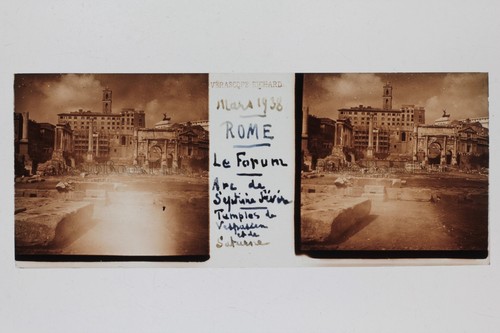 Mars 1938
ROME
Le Forum
Arc de
Septime Sévère
Temples de
Vespasien
et de
Saturne